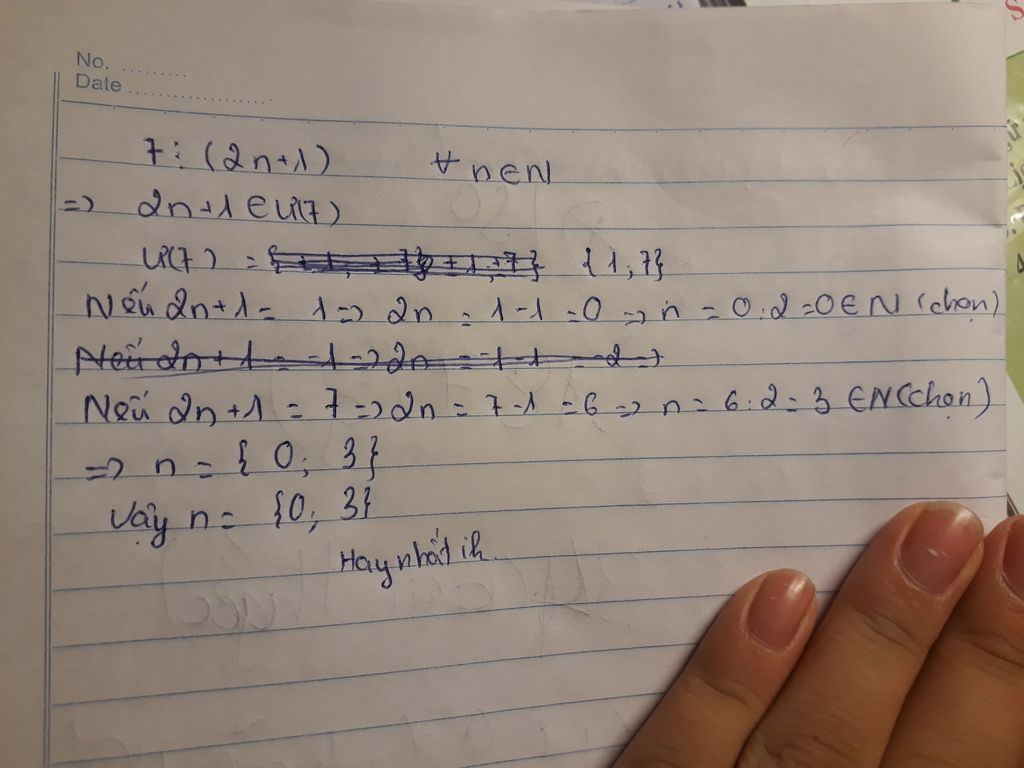 No. .........
Date ....................
7 ⋮ (2n+1) ∀ n∈N
=> 2n+1 ∈ Ư(7)
Ư(7) = {1,7}
Nếu 2n+1 = 1 => 2n = 1-1 =0 => n = 0:2 =0 ∈ N (chọn)
Nếu 2n + 1 = -1 => 2n = -1-1 = -2 =>
Nếu 2n+1 = 7 => 2n = 7-1 =6 => n = 6:2 = 3 ∈N (chọn)
=> n = { 0; 3}
Vậy n = {0; 3}
Hay nhất ik